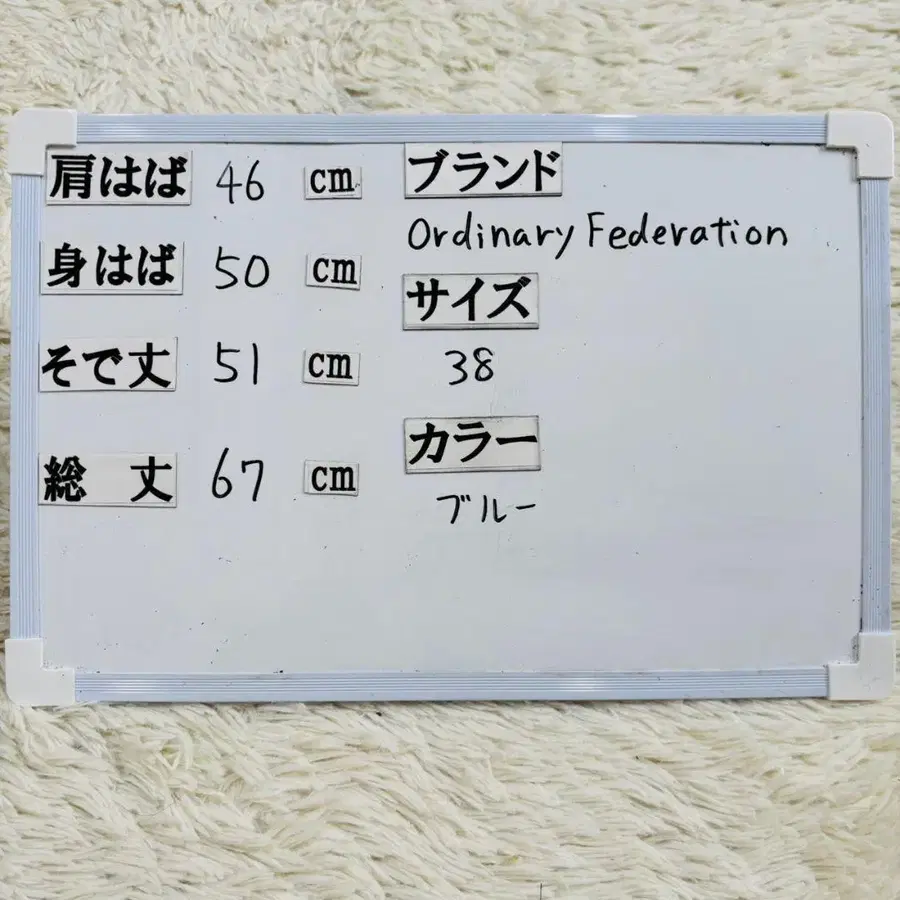 肩はば 46 cm
身はば 50 cm
そで丈 51 cm
総 丈 67 cm
ブランド
Ordinary Federation
サイズ
38
カラー
ブルー